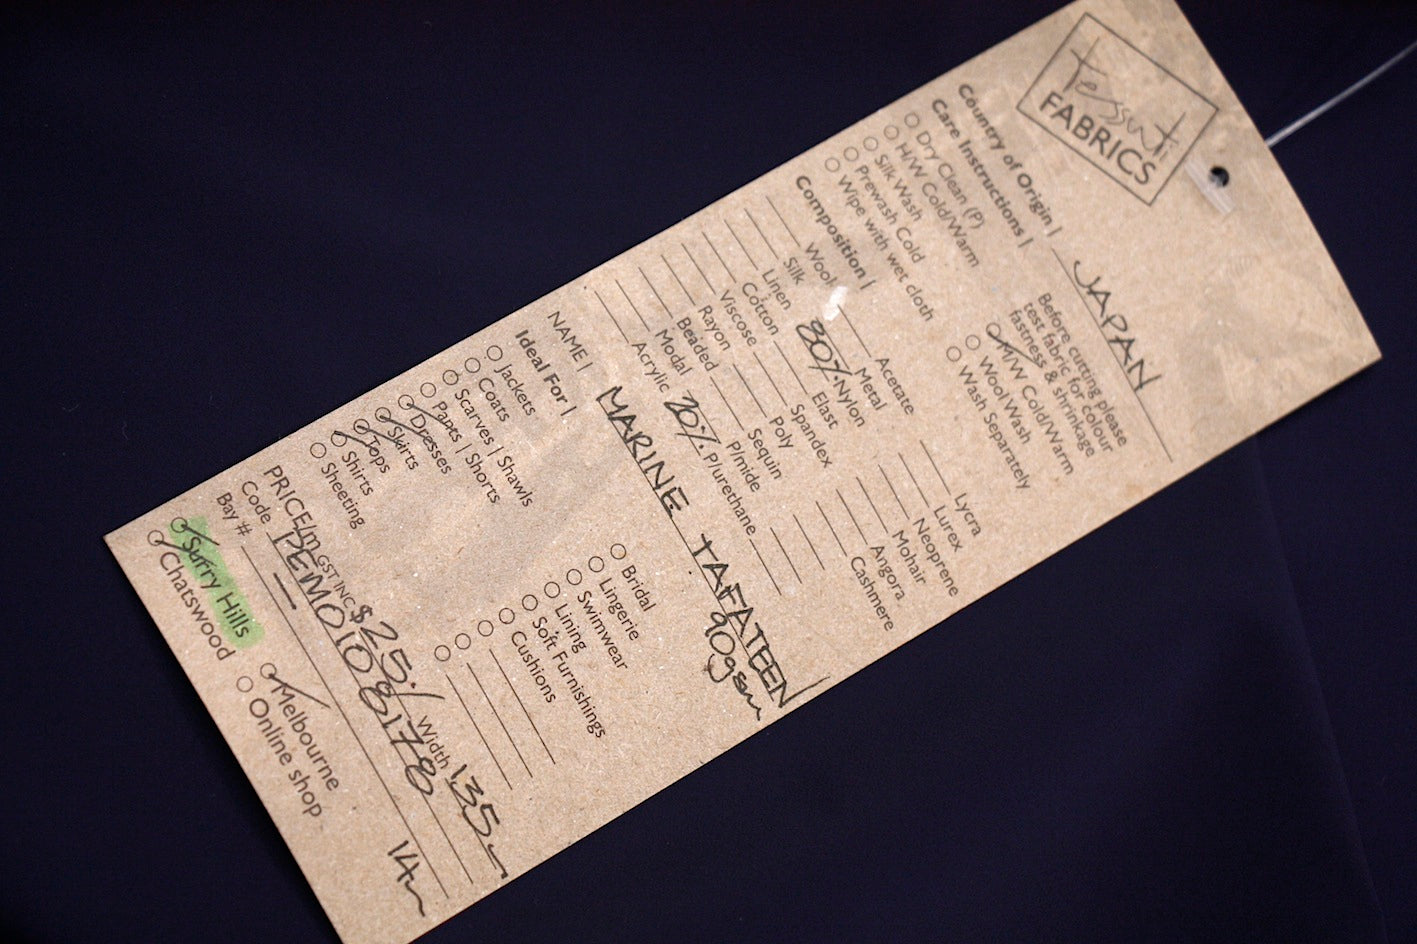 tessuti
FABRICS
Country of Origin | JAPAN
Care Instructions |
Before cutting please
test fabric for colour
fastness & shrinkage
Dry Clean (P)
H/W Cold/Warm
Silk Wash
Prewash Cold
Wipe with wet cloth
M/W Cold/Warm
Wool Wash
Wash Separately
Composition |
Wool
Silk
Linen
Cotton
Viscose
Rayon
Beaded
Modal
Acrylic
Acetate
Metal
80% Nylon
Elast
Spandex
Poly
Sequin
P/mide
20% P/urethane
Lycra
Lurex
Neoprene
Mohair
Angora
Cashmere
NAME | MARINE TAFATEEN
90gsm
Ideal For |
Jackets
Coats
Scarves | Shawls
Pants | Shorts
Dresses
Skirts
Tops
Shirts
Sheeting
Bridal
Lingerie
Swimwear
Lining
Soft Furnishings
Cushions
PRICE/m GST INC $25./ Width 135m
Code PEMO108178
Bay # — 14m
Surry Hills
Chatswood
Melbourne
Online shop